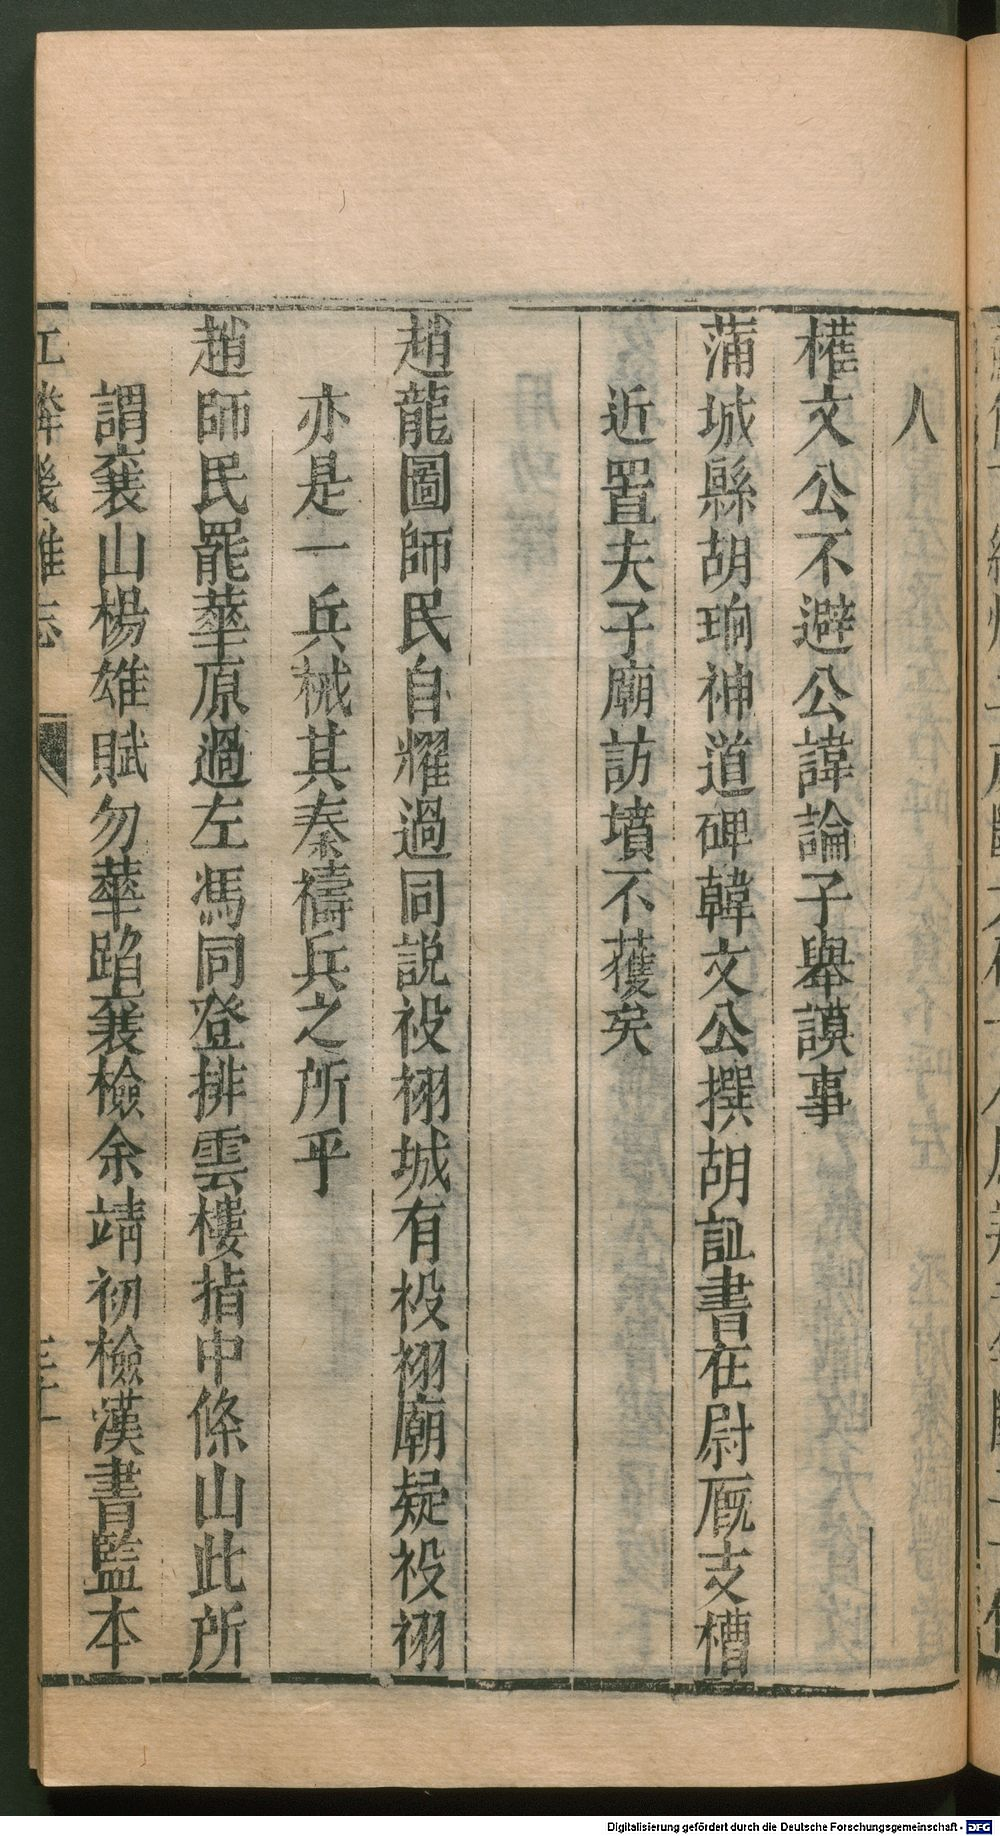 人
權文公不避公諱論子舉謨事
蒲城縣胡珦神道碑韓文公撰胡証書在尉厩支槽
近置夫子廟訪墳不獲矣
趙龍圖師民自耀過同説祋栩城有祋栩廟疑祋栩
亦是一兵械其秦禱兵之所乎
趙師民罷華原過左馮同登排雲樓指中條山此所
謂襄山楊雄賦勿華蹈襄檢余靖初檢漢書監本
江鄰幾雜志
Digitalisierung gefördert durch die Deutsche Forschungsgemeinschaft - DFG